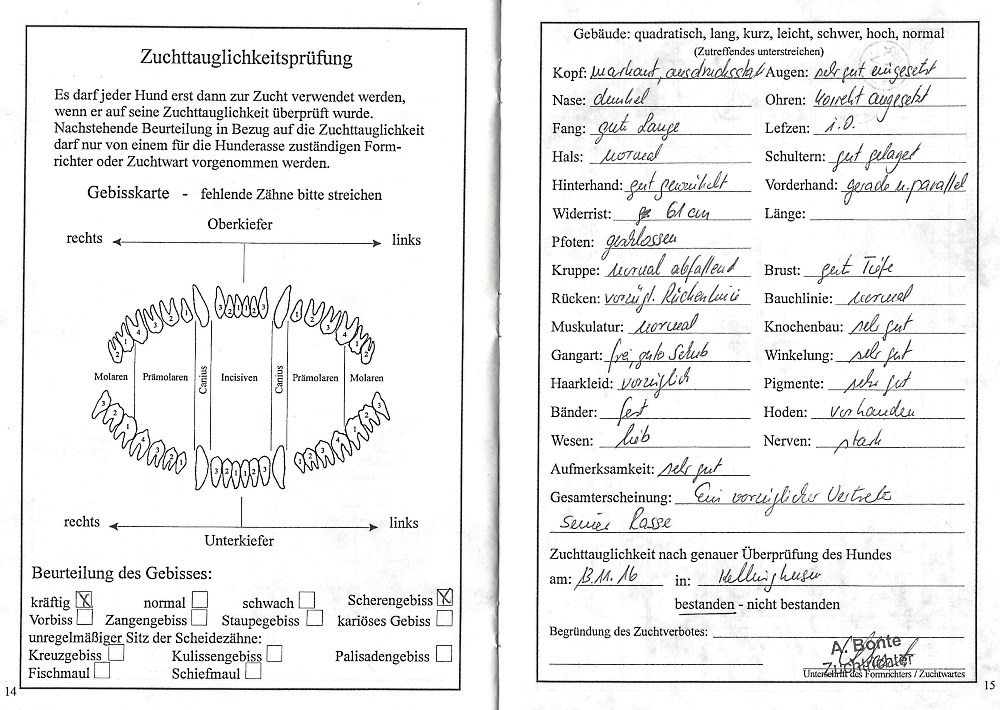 Zuchttauglichkeitsprüfung
Es darf jeder Hund erst dann zur Zucht verwendet werden,
wenn er auf seine Zuchttauglichkeit überprüft wurde.
Nachstehende Beurteilung in Bezug auf die Zuchttauglichkeit
darf nur von einem für die Hunderasse zuständigen Form-
richter oder Zuchtwart vorgenommen werden.
Gebisskarte - fehlende Zähne bitte streichen
Oberkiefer
rechts links
Molaren Prämolaren Canius Incisiven Canius Prämolaren Molaren
rechts links
Unterkiefer
Beurteilung des Gebisses:
kräftig X normal schwach Scherengebiss X
Vorbiss Zangengebiss Staupegebiss kariöses Gebiss
unregelmäßiger Sitz der Scheidezähne:
Kreuzgebiss Kulissengebiss Palisadengebiss
Fischmaul Schiefmaul
14
Gebäude: quadratisch, lang, kurz, leicht, schwer, hoch, normal
(Zutreffendes unterstreichen)
Kopf: markant, ausdrucksstark Augen: sehr gut eingesetzt
Nase: dunkel Ohren: korrekt angesetzt
Fang: gute Länge Lefzen: i.O.
Hals: normal Schultern: gut gelagert
Hinterhand: gut gewinkelt Vorderhand: gerade u. parallel
Widerrist: 61 cm Länge:
Pfoten: geschlossen
Kruppe: normal abfallend Brust: gute Tiefe
Rücken: vorzügl. Rückenlinie Bauchlinie: normal
Muskulatur: normal Knochenbau: sehr gut
Gangart: frei, guter Schub Winkelung: sehr gut
Haarkleid: vorzüglich Pigmente: sehr gut
Bänder: fest Hoden: vorhanden
Wesen: lieb Nerven: stark
Aufmerksamkeit: sehr gut
Gesamterscheinung: Ein vorzüglicher Vertreter
seiner Rasse
Zuchttauglichkeit nach genauer Überprüfung des Hundes
am: 13.11.16 in: Kellinghusen
bestanden - nicht bestanden
Begründung des Zuchtverbotes:
A. Bonte
Zuchtrichter
Unterschrift des Formrichters / Zuchtwartes
15